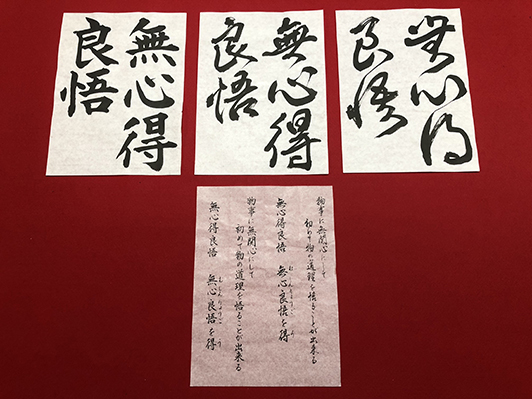 無心得
良悟
無心得
良悟
無心得
良悟
物事に無関心にして
初めて物の道理を悟ることが出来る
無心得良悟 無心良悟を得
物事に無関心にして
初めて物の道理を悟ることが出来る
無心得良悟 無心良悟を得